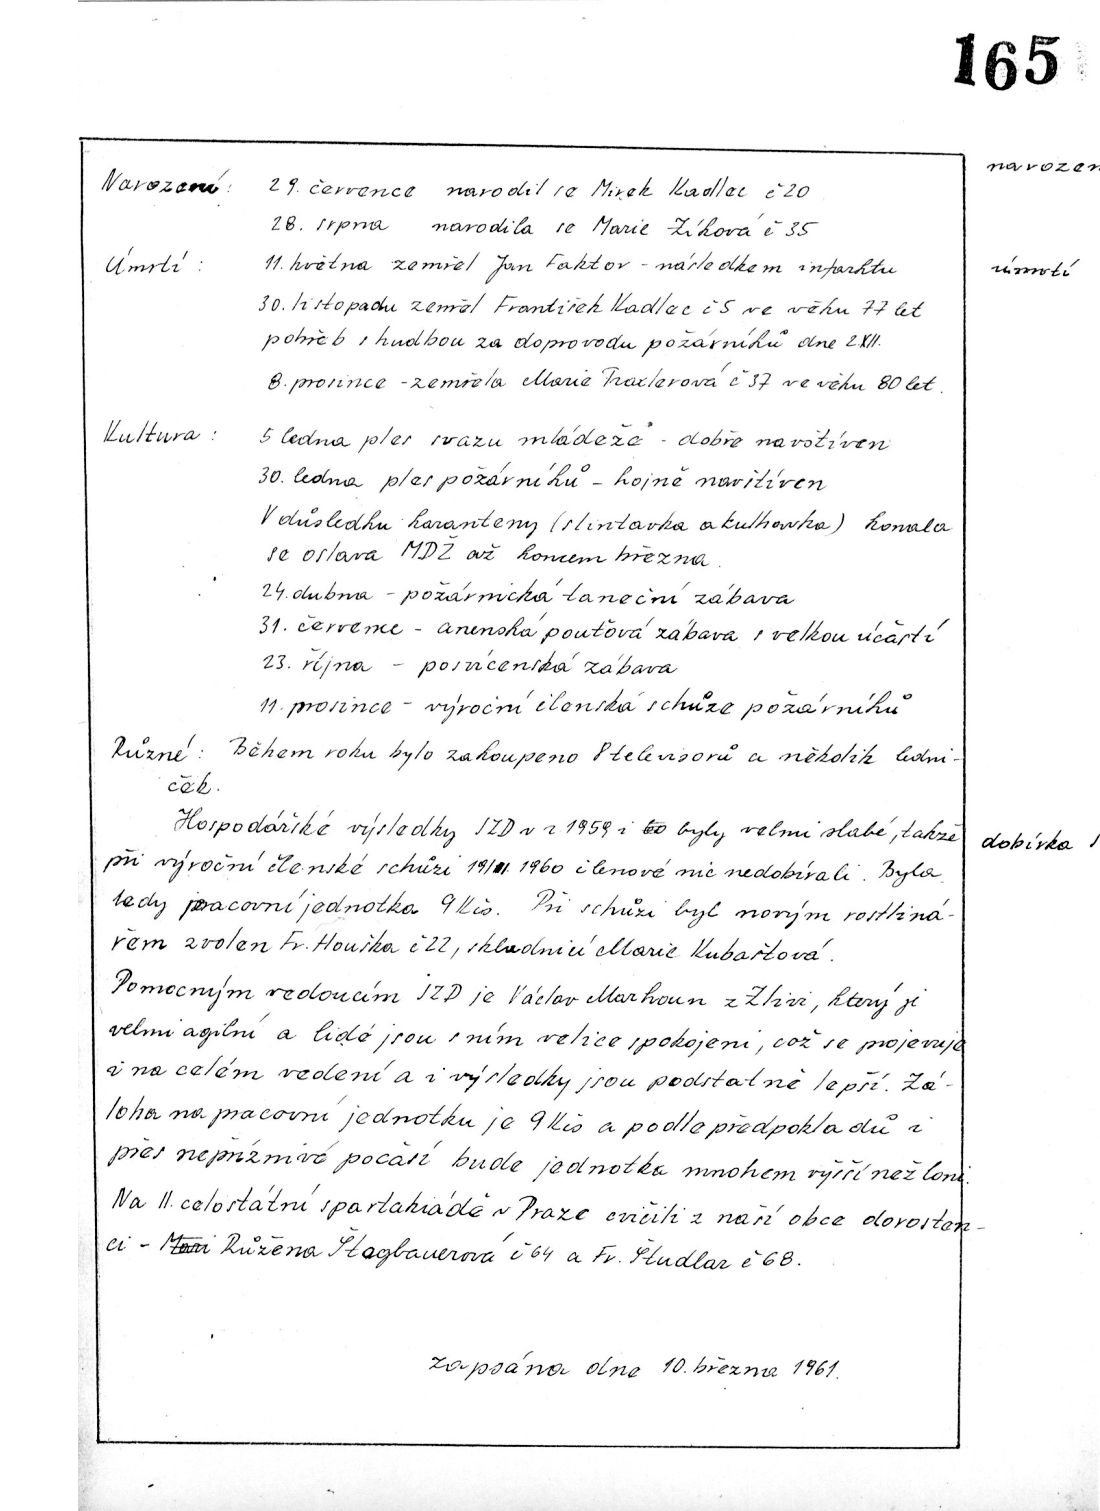 165
Narození: 29. července narodil se Mirek Kadlec č 20
narozen
28. srpna narodila se Marie Zíková č 35
Úmrtí: 11. května zemřel Jan Faktor - následkem infarktu
úmrtí
30. listopadu zemřel František Kadlec č 5 ve věku 77 let
pohřeb s hudbou za doprovodu požárníků dne 2 XII.
8. prosince - zemřela Marie Traxlerová č 37 ve věku 80 let.
Kultura: 5 ledna ples svazu mládeže - dobře navštíven
30. ledna ples požárníků - hojně navštíven
V důsledku karanteny (slintavka a kulhavka) konala
se oslava MDŽ až koncem března.
24. dubna - požárnická taneční zábava
31. července - anenská pouťová zábava s velkou účastí
23. října - posvícenská zábava
11. prosince - výroční členská schůze požárníků
Různé: Během roku bylo zakoupeno 8 televisorů a několik ledni-
ček.
Hospodářské výsledky JZD v r 1959 i to byly velmi slabé, takže
dobírka
při výroční členské schůzi 19/III 1960 členové nic nedobírali. Byla
tedy pracovní jednotka 9 Kčs. Při schůzi byl novým rostliná-
řem zvolen Fr. Houška č 22, skladnicí Marie Kubaštová.
Pomocným vedoucím JZD je Václav Marhoun z Zlivi, který je
velmi agilní a lidé jsou s ním velice spokojeni, což se projevuje
i na celém vedení a i výsledky jsou podstatně lepší. Zá-
loha na pracovní jednotku je 9 Kčs a podle předpokladů i
přes nepříznivé počasí bude jednotka mnohem vyšší než loni.
Na II. celostátní spartakiádě v Praze cvičili z naší obce dorosten-
ci - Mari Růžena Štegbauerová č 64 a Fr. Študlar č 68.
zapsána dne 10. března 1961.